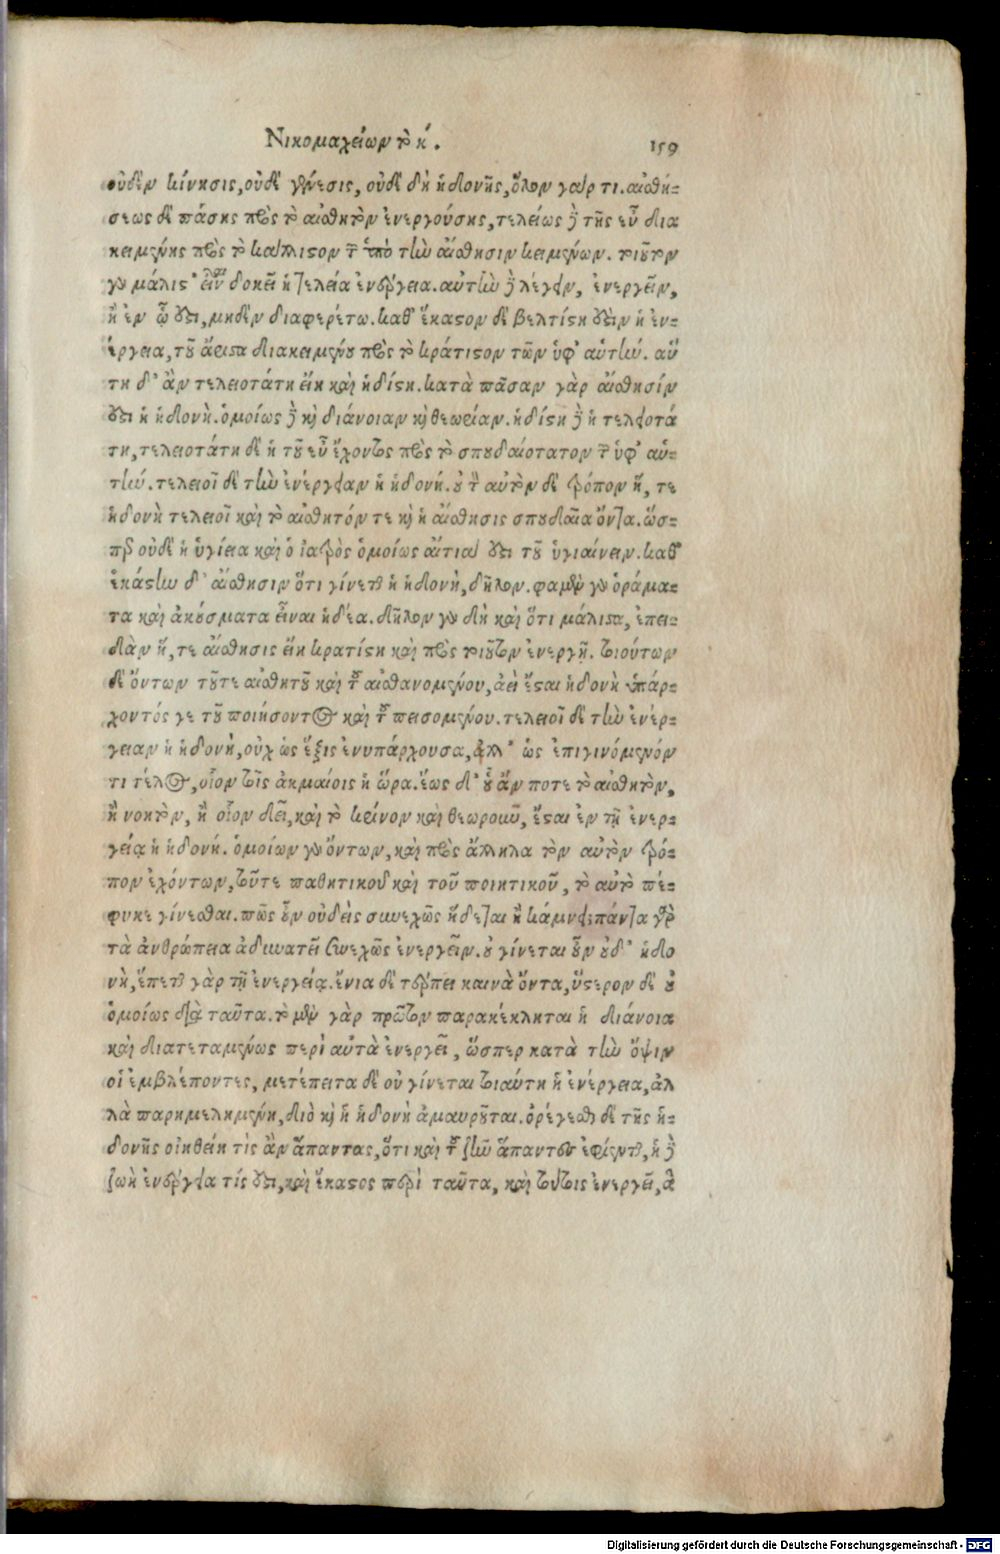 Νικομαχείων τὸ κ΄. 159
οὐδὲν κίνησις, οὐδὲ γένεσις, οὐδὲ δὴ ἡδονῆς, ὅλον γάρ τι. αἰσθή-
σεως δὲ πάσης πρὸς τὸ αἰσθητὸν ἐνεργούσης, τελείως δὲ τῆς εὖ δια
κειμένης πρὸς τὸ κάλλιστον τῶν ὑπὸ τὴν αἴσθησιν κειμένων. τοιοῦτον
γὰρ μάλιστ᾿ εἶναι δοκεῖ ἡ τελεία ἐνέργεια. αὐτὴν δὲ λέγειν, ἐνεργεῖν,
ἢ ἐν ᾧ ἐστι, μηδὲν διαφερέτω. καθ᾿ ἕκαστον δὲ βελτίστη ἐστὶν ἡ ἐν-
έργεια, τοῦ ἄριστα διακειμένου πρὸς τὸ κράτιστον τῶν ὑφ᾿ αὑτήν. αὕ
τη δ᾿ ἂν τελειοτάτη εἴη καὶ ἡδίστη. κατὰ πᾶσαν γὰρ αἴσθησίν
ἐστι ἡ ἡδονὴ. ὁμοίως δὲ καὶ διάνοιαν καὶ θεωρίαν. ἡδίστη δὲ ἡ τελειοτά
τη, τελειοτάτη δὲ ἡ τοῦ εὖ ἔχοντος πρὸς τὸ σπουδαιότατον τῶν ὑφ᾿ αὑ-
τήν. τελειοῖ δὲ τὴν ἐνέργειαν ἡ ἡδονή. οὐ τὸν αὐτὸν δὲ τρόπον ἥ, τε
ἡδονὴ τελειοῖ καὶ τὸ αἰσθητόν τε καὶ ἡ αἴσθησις σπουδαῖα ὄντα. ὥσ-
περ οὐδὲ ἡ ὑγίεια καὶ ὁ ἰατρὸς ὁμοίως αἴτιαί ἐστι τοῦ ὑγιαίνειν. καθ᾿
ἑκάστην δ᾿ αἴσθησιν ὅτι γίνεται ἡ ἡδονὴ, δῆλον. φαμὲν γὰρ ὁράμα-
τα καὶ ἀκούσματα εἶναι ἡδέα. δῆλον γὰρ δὴ καὶ ὅτι μάλιστα, ἐπει-
δὰν ἥ, τε αἴσθησις εἴη κρατίστη καὶ πρὸς τοιοῦτον ἐνεργῇ. τοιούτων
δὲ ὄντων τοῦτε αἰσθητοῦ καὶ τοῦ αἰσθανομένου, ἀεὶ ἔσται ἡδονὴ ὑπάρ-
χοντός γε τοῦ ποιήσοντος καὶ τοῦ πεισομένου. τελειοῖ δὲ τὴν ἐνέρ-
γειαν ἡ ἡδονὴ, οὐχ ὡς ἕξις ἐνυπάρχουσα, ἀλλ᾿ ὡς ἐπιγινόμενόν
τι τέλος, οἷον τοῖς ἀκμαίοις ἡ ὥρα. ἕως δ᾿ οὗ ἄν ποτε τὸ αἰσθητὸν,
ἢ νοητὸν, ᾖ οἷον δεῖ, καὶ τὸ κρίνον καὶ θεωροῦν, ἔσται ἐν τῇ ἐνερ-
γείᾳ ἡ ἡδονή. ὁμοίων γὰρ ὄντων, καὶ πρὸς ἄλληλα τὸν αὐτὸν τρό-
πον ἐχόντων, τοῦτε παθητικοῦ καὶ τοῦ ποιητικοῦ, τὸ αὐτὸ πέ-
φυκε γίνεσθαι. πῶς οὖν οὐδεὶς συνεχῶς ἥδεται ἢ κάμνει; πάντα γὰρ
τὰ ἀνθρώπεια ἀδυνατεῖ συνεχῶς ἐνεργεῖν. οὐ γίνεται οὖν οὐδ᾿ ἡδο
νὴ, ἕπεται γὰρ τῇ ἐνεργείᾳ. ἔνια δὲ τέρπει καινὰ ὄντα, ὕστερον δὲ οὐ
ὁμοίως διὰ ταῦτα. τὸ μὲν γὰρ πρῶτον παρακέκληται ἡ διάνοια
καὶ διατεταμένως περὶ αὐτὰ ἐνεργεῖ, ὥσπερ κατὰ τὴν ὄψιν
οἱ ἐμβλέποντες, μετέπειτα δὲ οὐ γίνεται τοιαύτη ἡ ἐνέργεια, ἀλ
λὰ παρημελημένη, διὸ καὶ ἡ ἡδονὴ ἀμαυροῦται. ὀρέγεσθαι δὲ τῆς ἡ-
δονῆς οἰηθείη τὶς ἂν ἅπαντας, ὅτι καὶ τοῦ ζῆν ἅπαντες ἐφίενται, ἡ δὲ
ζωὴ ἐνέργεια τίς ἐστι, καὶ ἕκαστος περὶ ταῦτα, καὶ τούτοις ἐνεργεῖ, ἃ
Digitalisierung gefördert durch die Deutsche Forschungsgemeinschaft - DFG